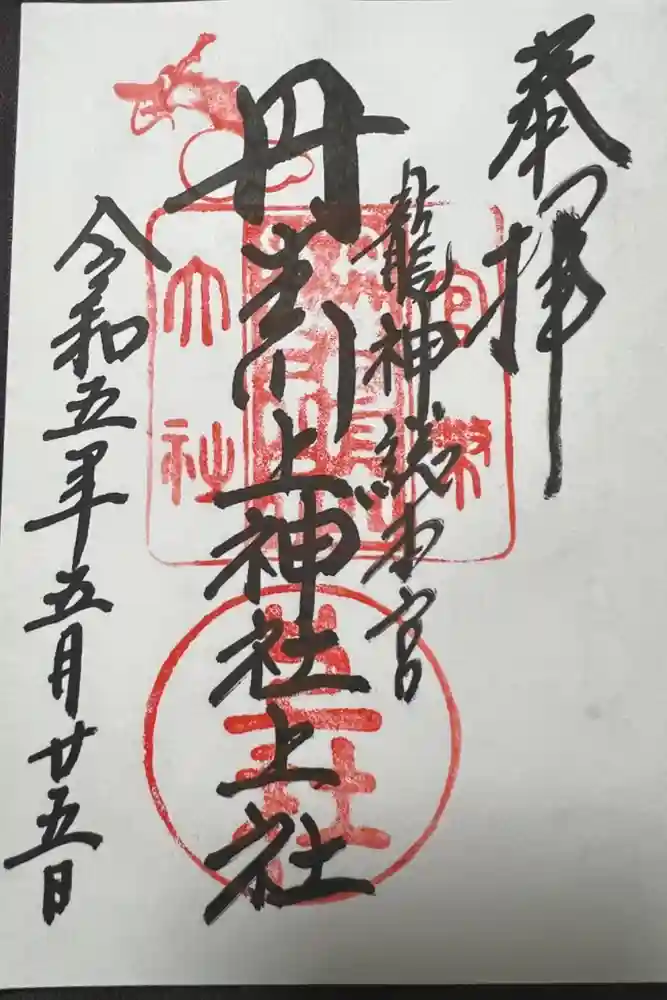 奉拝
龍神総本宮
丹生川上神社上社
令和五年五月廿五日
官幣
大社